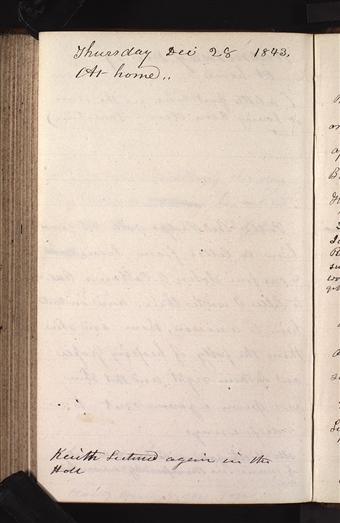 Thursday Dec 28 1843.
At home..
Keith Lectured again in the
Hall